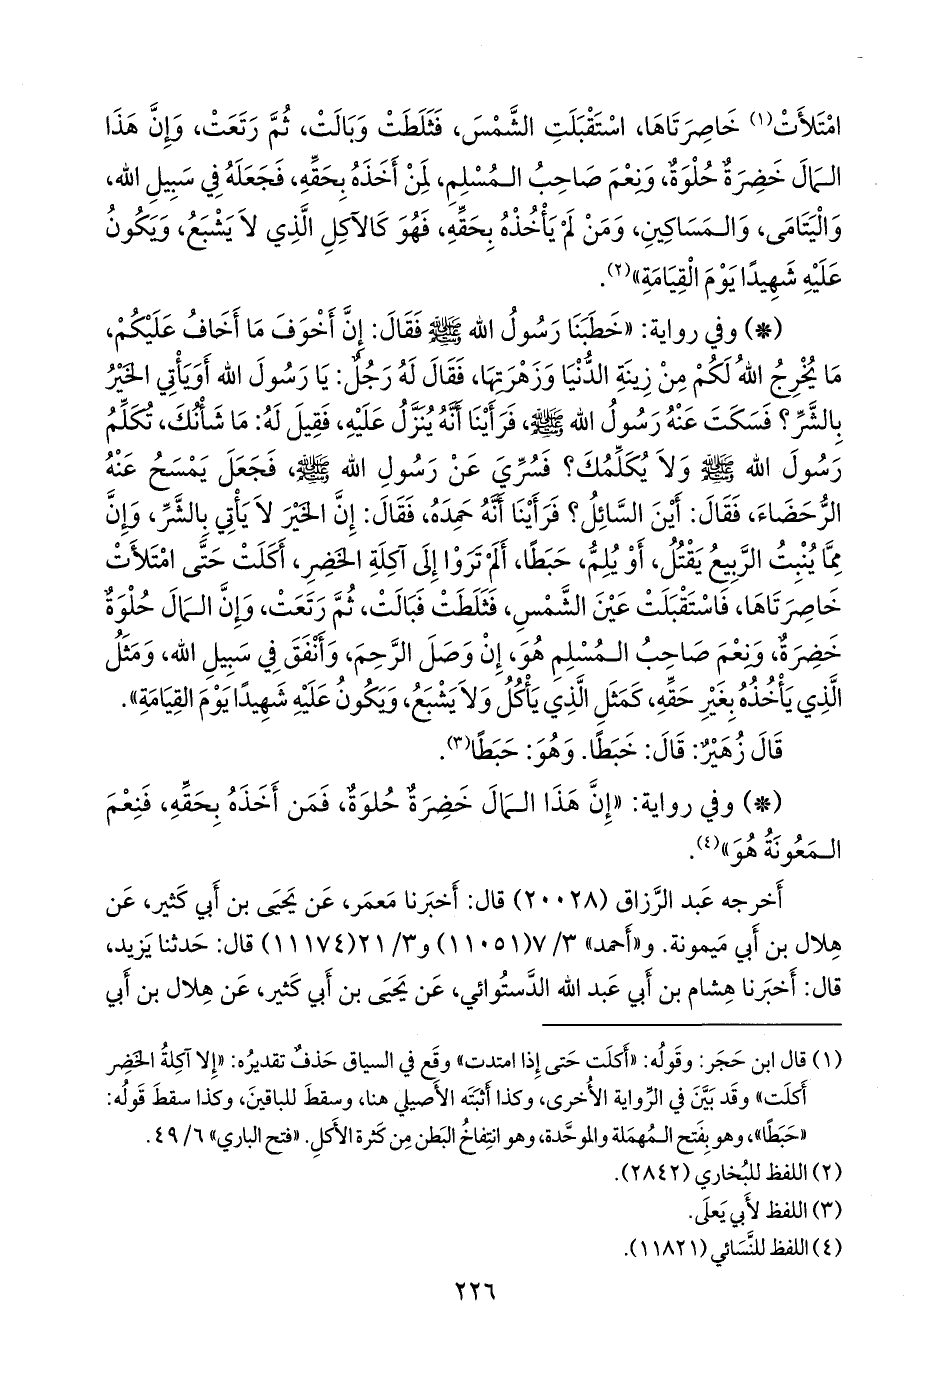 امْتَلأَتْ(١) خَاصِرَتَاهَا، اسْتَقْبَلَتِ الشَّمْسَ، فَثَلَطَتْ وَبَالَتْ، ثُمَّ رَتَعَتْ، وَإِنَّ هَذَا
الـمَالَ خَضِرَةٌ حُلْوَةٌ، وَنِعْمَ صَاحِبُ الـمُسْلِمِ، لِمَنْ أَخَذَهُ بِحَقِّهِ، فَجَعَلَهُ فِي سَبِيلِ الله،
وَالْيَتَامَى، وَالـمَسَاكِينِ، وَمَنْ لَمْ يَأْخُذْهُ بِحَقِّهِ، فَهُوَ كَالآكِلِ الَّذِي لاَ يَشْبَعُ، وَيَكُونُ
عَلَيْهِ شَهِيدًا يَوْمَ الْقِيَامَةِ»(٢).
(*) وفي رواية: «خَطَبَنَا رَسُولُ الله ﷺ فَقَالَ: إِنَّ أَخْوَفَ مَا أَخَافُ عَلَيْكُمْ،
مَا يُخْرِجُ اللهُ لَكُمْ مِنْ زِينَةِ الدُّنْيَا وَزَهْرَتِهَا، فَقَالَ لَهُ رَجُلٌ: يَا رَسُولَ الله أَوَيَأْتِي الخَيْرُ
بِالشَّرِّ؟ فَسَكَتَ عَنْهُ رَسُولُ الله ﷺ، فَرَأَيْنَا أَنَّهُ يُنَزَّلُ عَلَيْهِ، فَقِيلَ لَهُ: مَا شَأْنُكَ، تُكَلِّمُ
رَسُولَ الله ﷺ وَلاَ يُكَلِّمُكَ؟ فَسُرِّيَ عَنْ رَسُولِ الله ﷺ، فَجَعَلَ يَمْسَحُ عَنْهُ
الرُّحَضَاءَ، فَقَالَ: أَيْنَ السَّائِلُ؟ فَرَأَيْنَا أَنَّهُ حَمِدَهُ، فَقَالَ: إِنَّ الخَيْرَ لاَ يَأْتِي بِالشَّرِّ، وَإِنَّ
مِمَّا يُنْبِتُ الرَّبِيعُ يَقْتُلُ، أَوْ يُلِمُّ، حَبَطًا، أَلَمْ تَرَوْا إِلَى آكِلَةِ الخَضِرِ، أَكَلَتْ حَتَّى امْتَلأَتْ
خَاصِرَتَاهَا، فَاسْتَقْبَلَتْ عَيْنَ الشَّمْسِ، فَثَلَطَتْ فَبَالَتْ، ثُمَّ رَتَعَتْ، وَإِنَّ الـمَالَ حُلْوَةٌ
خَضِرَةٌ، وَنِعْمَ صَاحِبُ الـمُسْلِمِ هُوَ، إِنْ وَصَلَ الرَّحِمَ، وَأَنْفَقَ فِي سَبِيلِ الله، وَمَثَلُ
الَّذِي يَأْخُذُهُ بِغَيْرِ حَقِّهِ، كَمَثَلِ الَّذِي يَأْكُلُ وَلاَ يَشْبَعُ، وَيَكُونُ عَلَيْهِ شَهِيدًا يَوْمَ القِيَامَةِ».
قَالَ زُهَيْرٌ: قَالَ: خَبَطًا. وَهُوَ: حَبَطًا(٣).
(*) وفي رواية: «إِنَّ هَذَا الـمَالَ خَضِرَةٌ حُلوَةٌ، فَمَن أَخَذَهُ بِحَقِّهِ، فَنِعْمَ
الـمَعُونَةُ هُوَ»(٤).
أَخرجه عَبد الرَّزاق (٢٠٠٢٨) قال: أَخبَرنا مَعمَر، عَن يَحيَى بن أَبي كَثير، عَن
هِلال بن أَبي مَيمونة. و«أَحمد» ٣/ ٧(١١٠٥١) و٣/ ٢١(١١١٧٤) قال: حَدثنا يَزيد،
قال: أَخبَرنا هِشام بن أَبي عَبد الله الدَّستُوائي، عَن يَحيَى بن أَبي كَثير، عَن هِلال بن أَبي
(١) قال ابن حَجَر: وقولُه: «أَكلَت حَتى إِذا امتدت» وقَع في السياق حَذفٌ تقديرُه: «إِلا آكلةُ الخَضِر
أَكلَت» وقَد بَيَّنَ في الرِّواية الأُخرى، وكذا أَثبَته الأَصيلي هنا، وسقطَ للباقينَ، وكذا سقطَ قَولُه:
«حَبَطًا»، وهو بِفَتح الـمُهمَلة والموحَّدة، وهو انتِفاخُ البَطن مِن كَثرة الأَكل. «فتح الباري» ٦/ ٤٩.
(٢) اللفظ للبُخاري (٢٨٤٢).
(٣) اللفظ لأَبي يَعلَى.
(٤) اللفظ للنَّسَائي (١١٨٢١).
٢٢٦